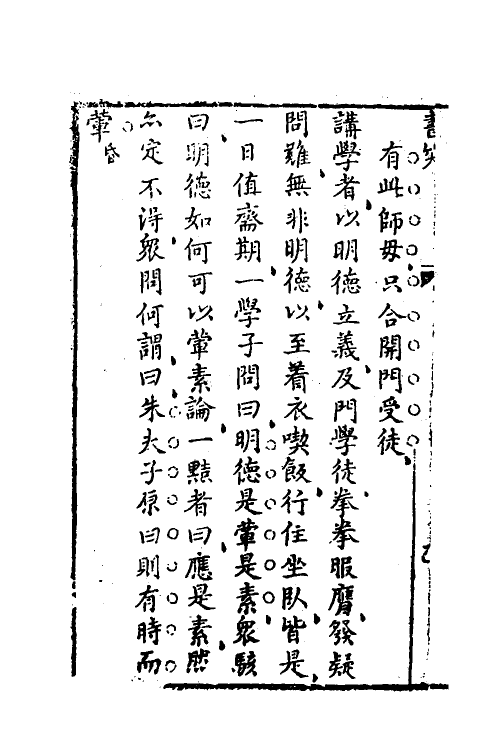 有此師毋只合開門受徒
講學者以明德立義及門學徒拳拳服膺發疑
問難無非明德以至着衣喫飯行住坐臥皆是
一日值齋期一學子問曰明德是葷是素衆駭
曰明德如何可以葷素論一黠者曰應是素然
亦定不得衆問何謂曰朱夫子原曰則有時而
葷昏